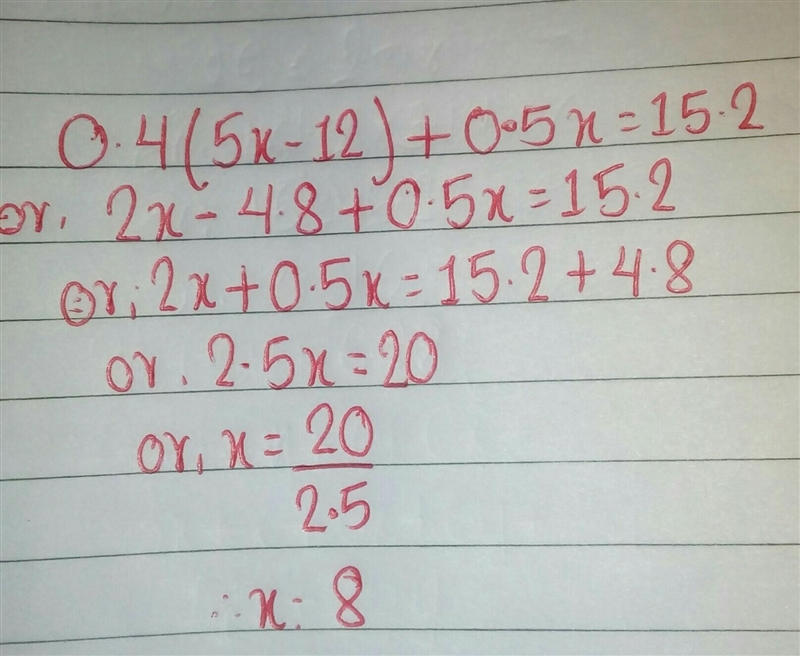 0·4(5x-12)+0·5x=15·2
or, 2x-4·8+0·5x=15·2
or, 2x+0·5x=15·2+4·8
or. 2·5x=20
or, x=20/2·5
∴x: 8